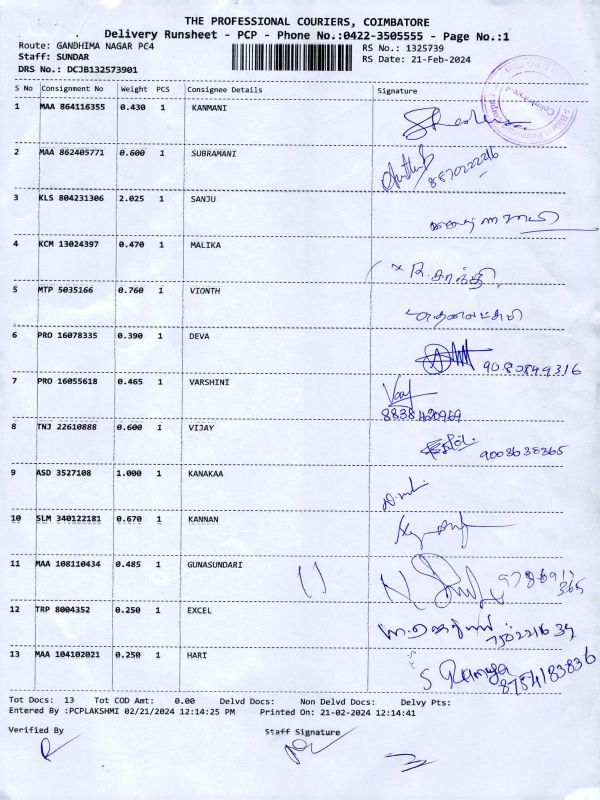 THE PROFESSIONAL COURIERS, COIMBATORE
Delivery Runsheet - PCP - Phone No.:0422-3505555 - Page No.:1
Route: GANDHIMA NAGAR PC4 RS No.: 1325739
Staff: SUNDAR RS Date: 21-Feb-2024
DRS No.: DCJB132573901
S No Consignment No Weight PCS Consignee Details Signature
1 MAA 864116355 0.430 1 KANMANI
2 MAA 862405771 0.600 1 SUBRAMANI
8870222216
3 KLS 804231306 2.025 1 SANJU
4 KCM 13024397 0.470 1 MALIKA
R. சாந்தி
5 MTP 5035166 0.760 1 VIONTH
6 PRO 16078335 0.390 1 DEVA
9080849316
7 PRO 16055618 0.465 1 VARSHINI
8 TNJ 22610888 0.600 1 VIJAY
9003638365
9 ASD 3527108 1.000 1 KANAKAA
10 SLM 340122181 0.670 1 KANNAN
11 MAA 108110434 0.485 1 GUNASUNDARI
12 TRP 8004352 0.250 1 EXCEL
13 MAA 104102021 0.250 1 HARI
S Ramya
8754183836
Tot Docs: 13 Tot COD Amt: 0.00 Delvd Docs: Non Delvd Docs: Delvy Pts:
Entered By :PCPLAKSHMI 02/21/2024 12:14:25 PM Printed On: 21-02-2024 12:14:41
Verified By Staff Signature